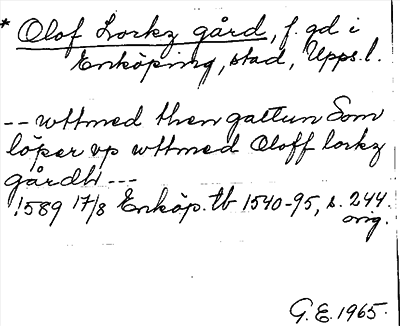 * Olof Lorkz gård, f. gd i
Enköping, stad, Upps. l.
-- wttmed then gattun Som
löper vp wttmed Oloff lorkz
gårdh ---
1589 17/8 Enköp. tb 1540-95, s. 244.
orig.
G.E. 1965.